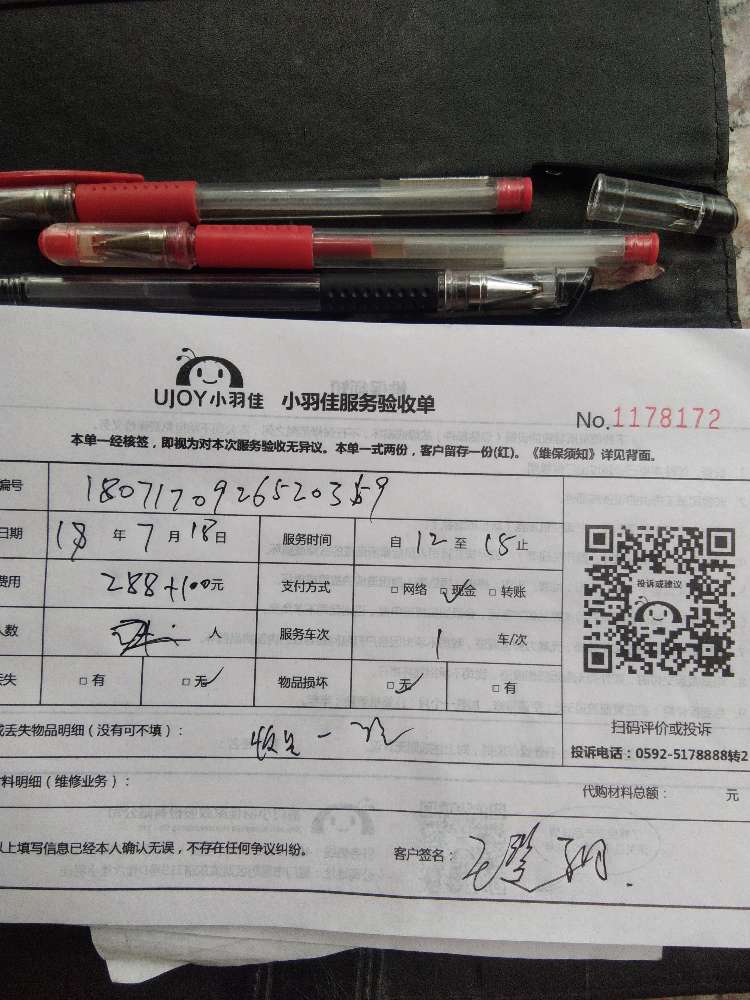 UJOY小羽佳 小羽佳服务验收单
No.1178172
本单一经核签，即视为对本次服务验收无异议。本单一式两份，客户留存一份(红)。《维保须知》详见背面。
编号 18071709265203
日期 18年7月18日 服务时间 自12至15止
费用 288+100元 支付方式 □网络 □现金 □转账
人数 人 服务车次 1 车/次
丢失 □有 □无 物品损坏 □无 □有
投诉或建议
扫码评价或投诉
投诉电话：0592-5178888转2
或丢失物品明细（没有可不填）：
材料明细（维修业务）：
代购材料总额： 元
以上填写信息已经本人确认无误，不存在任何争议纠纷。 客户签名：